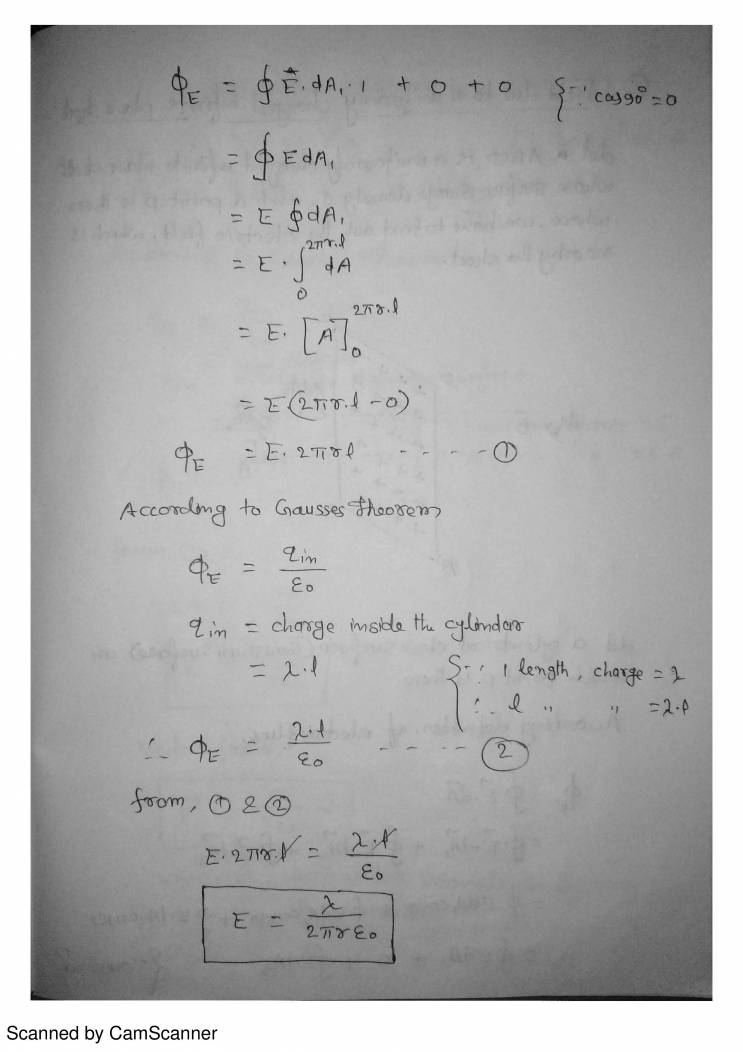 ϕE = ∮ E⃗. dA₁. 1 + 0 + 0 {∵ cos90° = 0
= ∮ E dA₁
= E ∮ dA₁
= E . ∫₀^2πr.l dA
= E. [A]₀^2πr.l
= E(2πr.l - 0)
ϕE = E. 2πrl - - - - ①
According to Gausses Theorem
ϕE = qin / ε0
qin = charge inside the cylinder
= λ.l {∵ 1 length, charge = λ
∴ l " " = λ.l
∴ ϕE = λ.l / ε0 - - - - - ②
from, ① & ②
E. 2πr.l = λ.l / ε0
E = λ / 2πrε0
Scanned by CamScanner